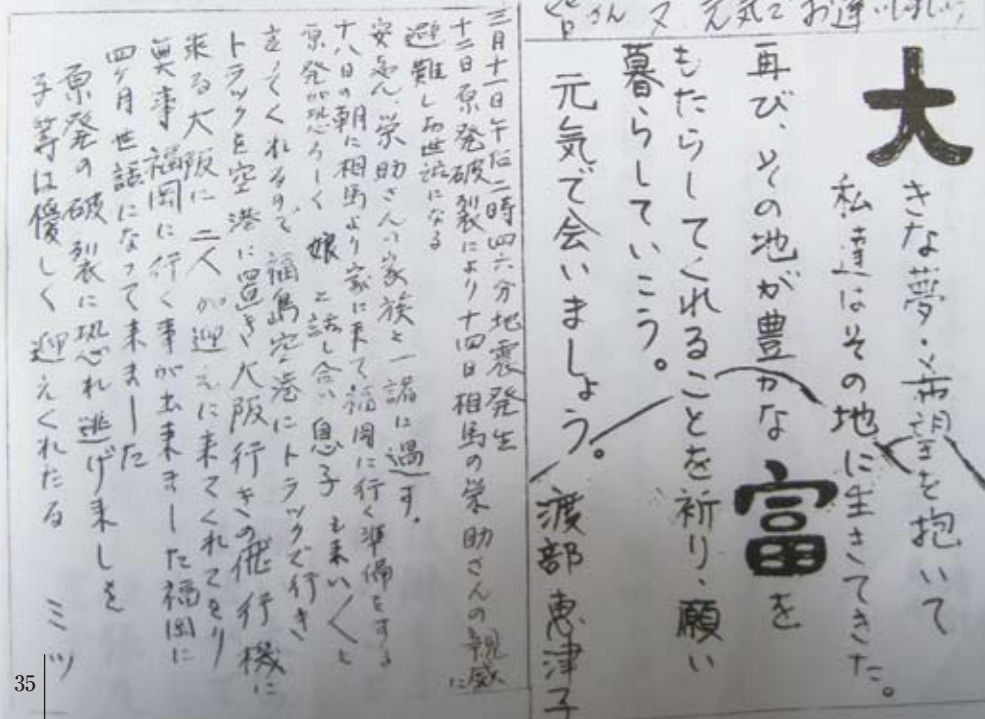 皆さん 又 元気で お逢いしましょう
大きな夢・希望を抱いて
私達はその地に生きてきた。
再び、その地が豊かな富を
もたらしてくれることを祈り、願い
暮らしていこう。
元気で会いましょう。 渡部恵津子
三月十一日午后二時四六分地震発生
十二日原発破裂により十四日相馬の栄助さんの親戚に
避難しお世話になる
安心ん、栄助さんの家族と一諸に過す。
十八日の朝に相馬より家に来て福岡に行く準備をする
原発が恐ろしく 娘と話し合い息子も来い〱と
立ってくれるので福島空港にトラックで行き
トラックを空港に置き大阪行きの飛行機に
乗る大阪に二人が迎えに来てくれてをり
無事福岡に行く事が出来ました福岡に
四ヶ月世話になって来ました
原発の破裂に恐れ逃げ来しを
子等は優しく迎えくれたる ミツ
35